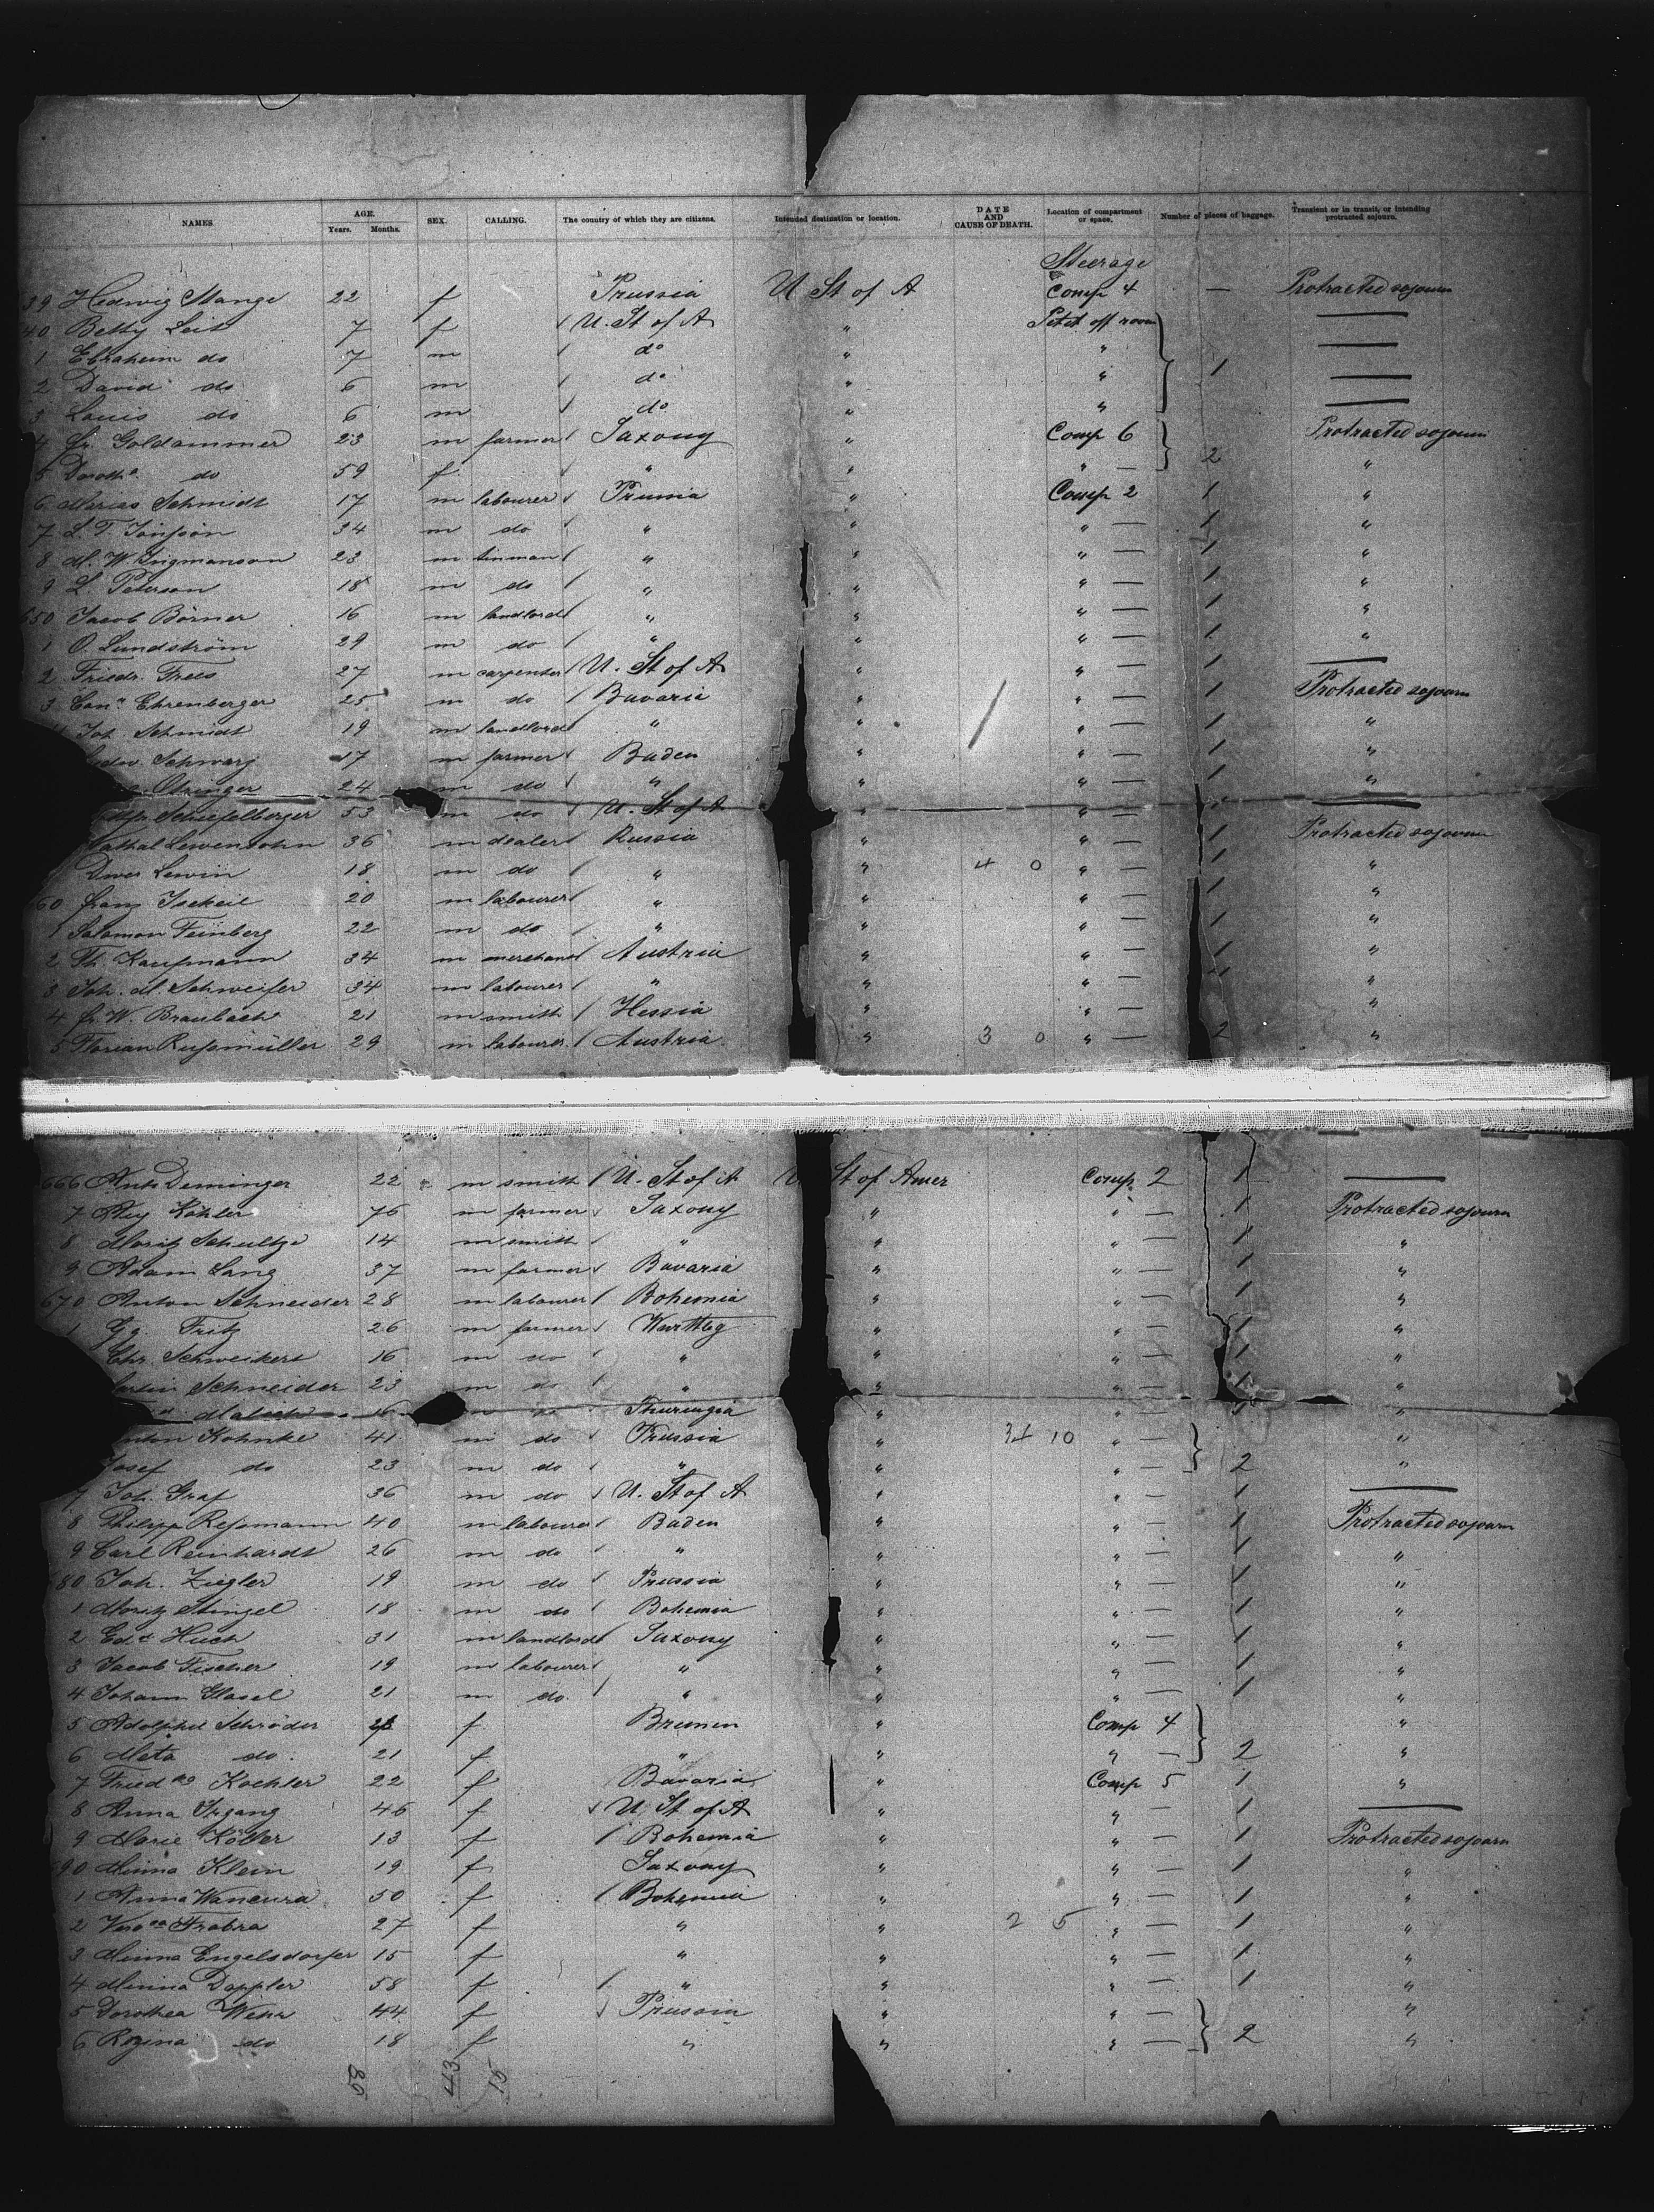 NAMES AGE. Years. Months. SEX. CALLING. The country of which they are citizens. Intended destination or location. DATE AND CAUSE OF DEATH. Location of compartment or space. Number of pieces of baggage. Transient or in transit, or intending protracted sojourn.
Steerage
39 Hedwig Mange 22 f Prussia U St of A Comp 4 — Protracted sojourn
40 Betty Leit 7 f U. St of A " —
1 Ebraheim do 7 m do " "
2 David do 6 m do " " 1 —
3 Louis do 6 m do " " —
4 Fr. Goldammer 23 m farmer Saxony " Comp 6 Protracted sojourn
5 Doroth. do 59 f " " " — 2 "
6 Marius Schmidt 17 m labourer Prussia " Comp 2 1 "
7 L. T. 34 m do " " " — 1 "
8 M. W. Ingmanson 23 m tinman " " " — 1 "
9 L. Peterson 18 m do " " " — 1 "
650 Jacob Börner 16 m landlord " " " — 1 "
1 O. Lundström 29 m do " " " — 1 "
2 Friedr. Frees 27 m carpenter U. St of A " " — 1 —
3 Ehrenberger 25 m do Bavaria " " — 1 Protracted sojourn
Joh Schmidt 19 m landlord " " " — 1 "
Schwarz 17 m farmer Baden " " — 1 "
24 m do " " " — 1 "
Schiefelberger 53 m do U. St of A " " — —
Lewensohn 36 m dealer Russia " " — 1 Protracted sojourn
Lewin 18 m do " " 4 0 " — 1 "
60 Franz 20 m labourer " " " — 1 "
1 Salomon Feinberg 22 m do " " " — 1 "
2 Th. Kaufmann 34 m merchand Austria " " — 1 "
3 Joh. M. Schweifer 34 m labourer " " " — "
4 Fr. W. Braubach 21 m smith Hessia " " — "
5 Florian Russmüller 29 m labourer Austria " 3 0 " — 2 "
666 Deminger 22 m smith U. St of A U St of Amer Comp 2 1 —
7 Aug Köhler 76 m farmer Saxony " " — 1 Protracted sojourn
8 Moritz Schultze 14 m smith " " " — 1 "
9 Adam Lang 37 m farmer Bavaria " " — 1 "
670 Anton Schneider 28 m labourer Bohemia " " — 1 "
1 Gg. Fritz 26 m farmer Wurttbg " " — 1 "
Chr. Schweikert 16 m do " " " — 1 "
Schneider 23 m do " " " — 1 "
16 Thuringia " " — "
Kohnke 41 m do Prussia " 34 10 " — "
Josef do 23 m do " " " — 2 "
7 Joh. Graf 36 m do U. St of A " " — 1 —
8 Philipp Ressmann 40 m labourer Baden " " — 1 Protracted sojourn
9 Carl Reinhardt 26 m do " " " — 1 "
80 Joh. Ziegler 19 m do Prussia " " — 1 "
1 Moritz Stingel 18 m do Bohemia " " — 1 "
2 Edd Huch 31 m landlord Saxony " " — 1 "
3 Jacob Fischer 19 m labourer " " " — 1 "
4 Johann Glasel 21 m do " " " — 1 "
5 Schröder f Bremen " Comp 4 "
6 Meta do. 21 f " " " — 2 "
7 Koehler 22 f Bavaria " Comp 5 1 "
8 Anna Irgang 46 f U. St of A " " — 1 —
9 Marie Köller 13 f Bohemia " " — 1 Protracted sojourn
690 Minna Klein 19 f Saxony " " — 1 "
1 Anna Wancura 50 f Bohemia " " — 1 "
2 27 f " " 2 5 " — 1 "
3 Minna Engelsdorfer 15 f " " " — 1 "
4 Minna Doppler 58 f " " " — 1 "
5 Dorothea Wehr 44 f Prussia " " — "
6 Regina do 18 f " " " — 2 "
43 15